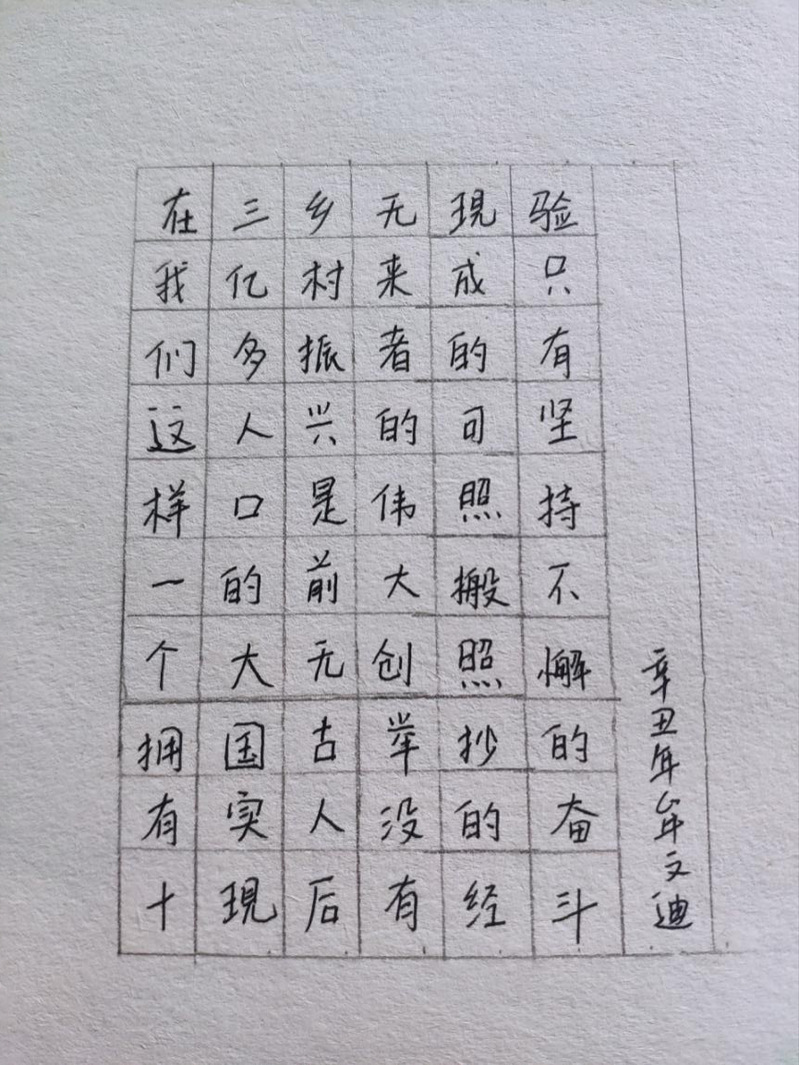 在我们这样一个拥有十
三亿多人口的大国实現
乡村振兴是前无古人后
无来者的伟大创举没有
現成的可照搬照抄的经
验只有坚持不懈的奋斗
辛丑年牟文迪